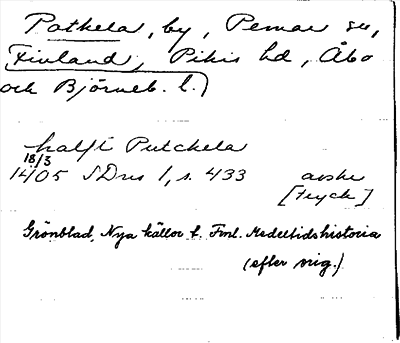 Patkela, by, Pemar sn,
Finland, Pikis hd, Åbo
och Björneb. l.)
halft Putchela
18/3
1405 SDns 1, s. 433 avskr
[tryck]
Grönblad, Nya källor t. Finl. Medeltidshistoria
(efter orig.)